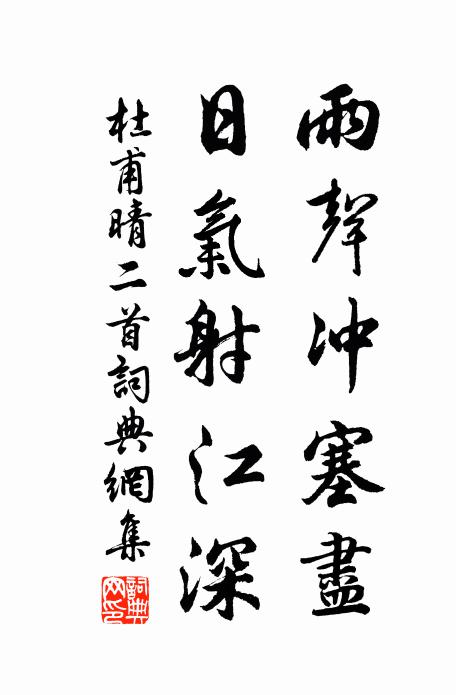 雨聲冲塞盡
日氣射江深
杜甫晴二首詞典網集
詞典网印